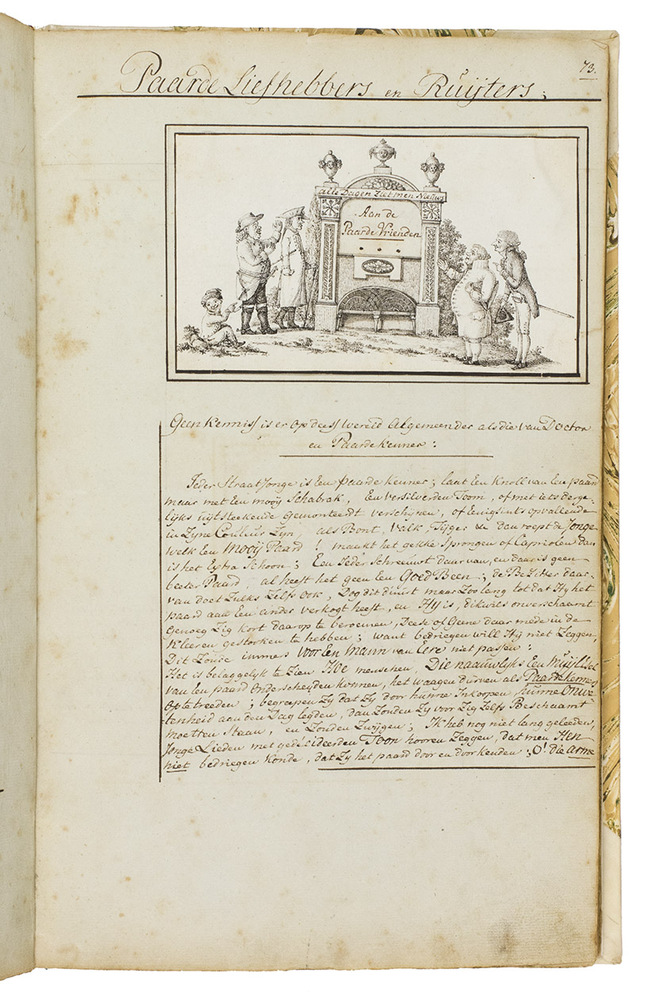 73.
Paarde Liefhebbers en Ruijters;
Alle Dagen Ziet men Nieuws
Aan de
Paarde Vrienden
Geen kennis is er op dees Wereld Algemeender als die van Doctor
en Paarde kenner:
Ieder Straat Jonge is Een paarde kenner; laat Een Knoll van Een paard
maar met Een mooij Schabrak, En versilverden Toom, of met iets derge-
lijks uijtsteekende gemonteert verscheinen, of Eenigsints opvallende
in Zijne Couleur Zijn, als Bont, Valk, Tijger &c dan roept de Jonge
welk Een mooij Paard! maakt het gekke Sprongen of Capriolen dan
is het Extra Schoon; Een Ieder Schreeuwt daar van, en daar is geen
beeter Paard, al heeft het geen Een Goed Been; de Bezitter daar-
van doet Zulks Zelfs ook, Dog dit duurt maar Zoo lang tot dat Hy het
paard aan Een ander verkogt heeft, en Hy is, dikwils onverschaamt
genoeg Zig kort daar op te beroemen, Deese of Geene daar mede in de
Kleeren gestooken te hebben; want bedriegen will Hy niet Zeggen,
Dit Zouse immers voor Een mann van Eere niet passen:
Het is belaggelyk te Zien Hoe menschen, Die naauwlyks Een Muijl Esel
van Een paard Onderscheyden konnen, het waagen durven als Paarde Kenners
op te treeden; begreepen Zy dat Zy door hunne Inkoopen hunne Onwe-
tenheid aan den Dag leyden, dan Zouden Zy voor Zig Zelfs Beschaamt
moetten Staan, en Zouden Zwijgen; Ik heb nog niet lang geleeden,
Jonge Lieden met gedecideerden Toon hooren Zeggen, dat men Hen
niet bedriegen konde, dat Zy het paard door en door kenden; O! die arme